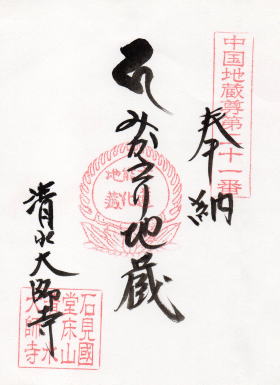 中国地蔵尊第十一番
奉納
みかへり地蔵
清水大師寺
石見國
堂床山
清水
大師寺